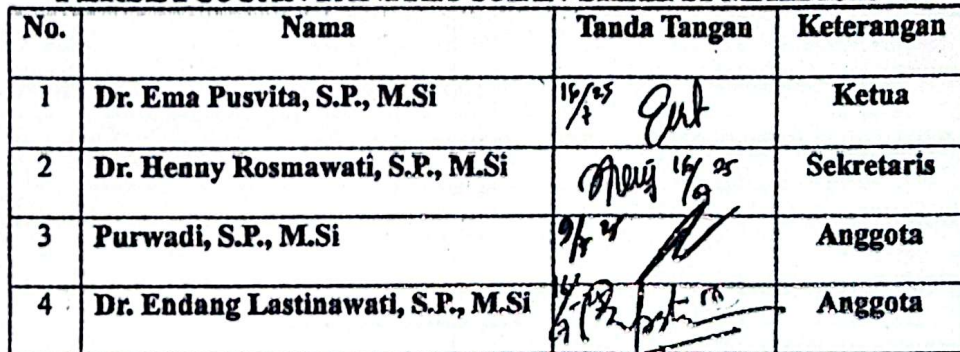 No. Nama Tanda Tangan Keterangan
1 Dr. Ema Pusvita, S.P., M.Si 16/7 25 Ketua
2 Dr. Henny Rosmawati, S.P., M.Si Sekretaris
3 Purwadi, S.P., M.Si Anggota
4 Dr. Endang Lastinawati, S.P., M.Si Anggota